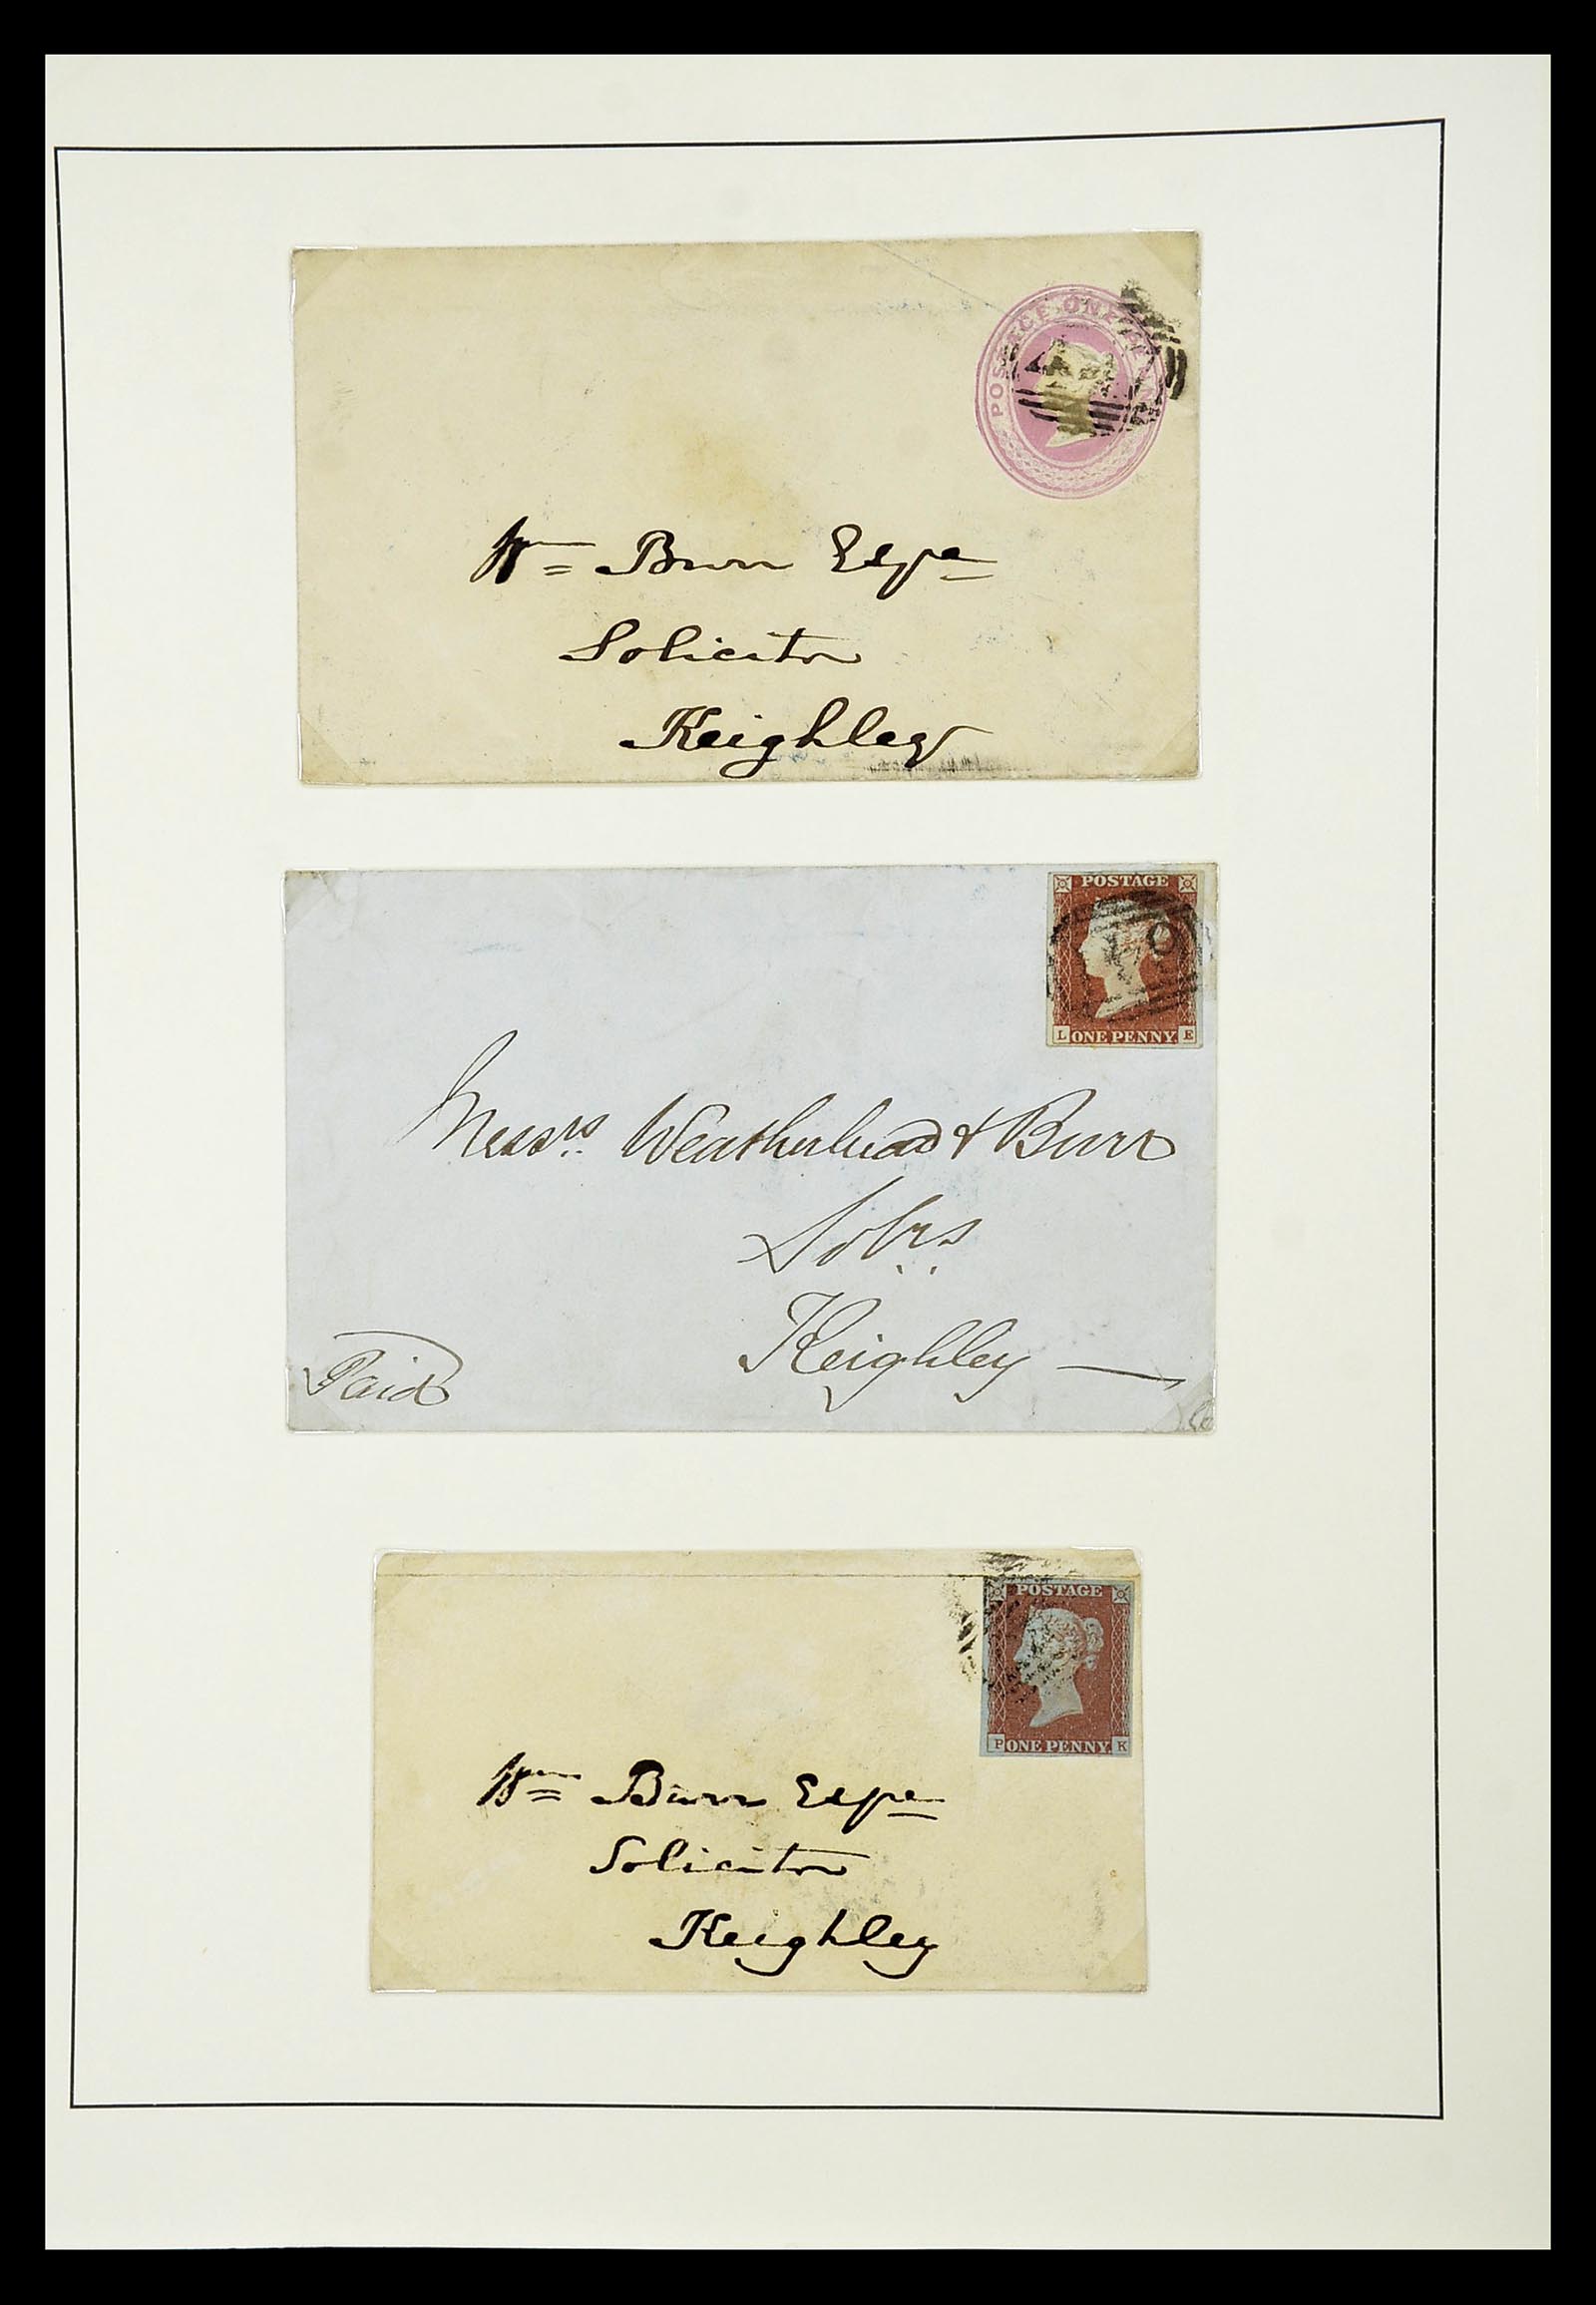 POSTAGE ONE PENNY
Wm Burr Esqre
Solicitor
Keighley
POSTAGE
L ONE PENNY. E
Messrs. Weatherhead & Burr
Solrs
Keighley —
Paid
POSTAGE
P ONE PENNY. K
Wm Burr Esqre
Solicitor
Keighley